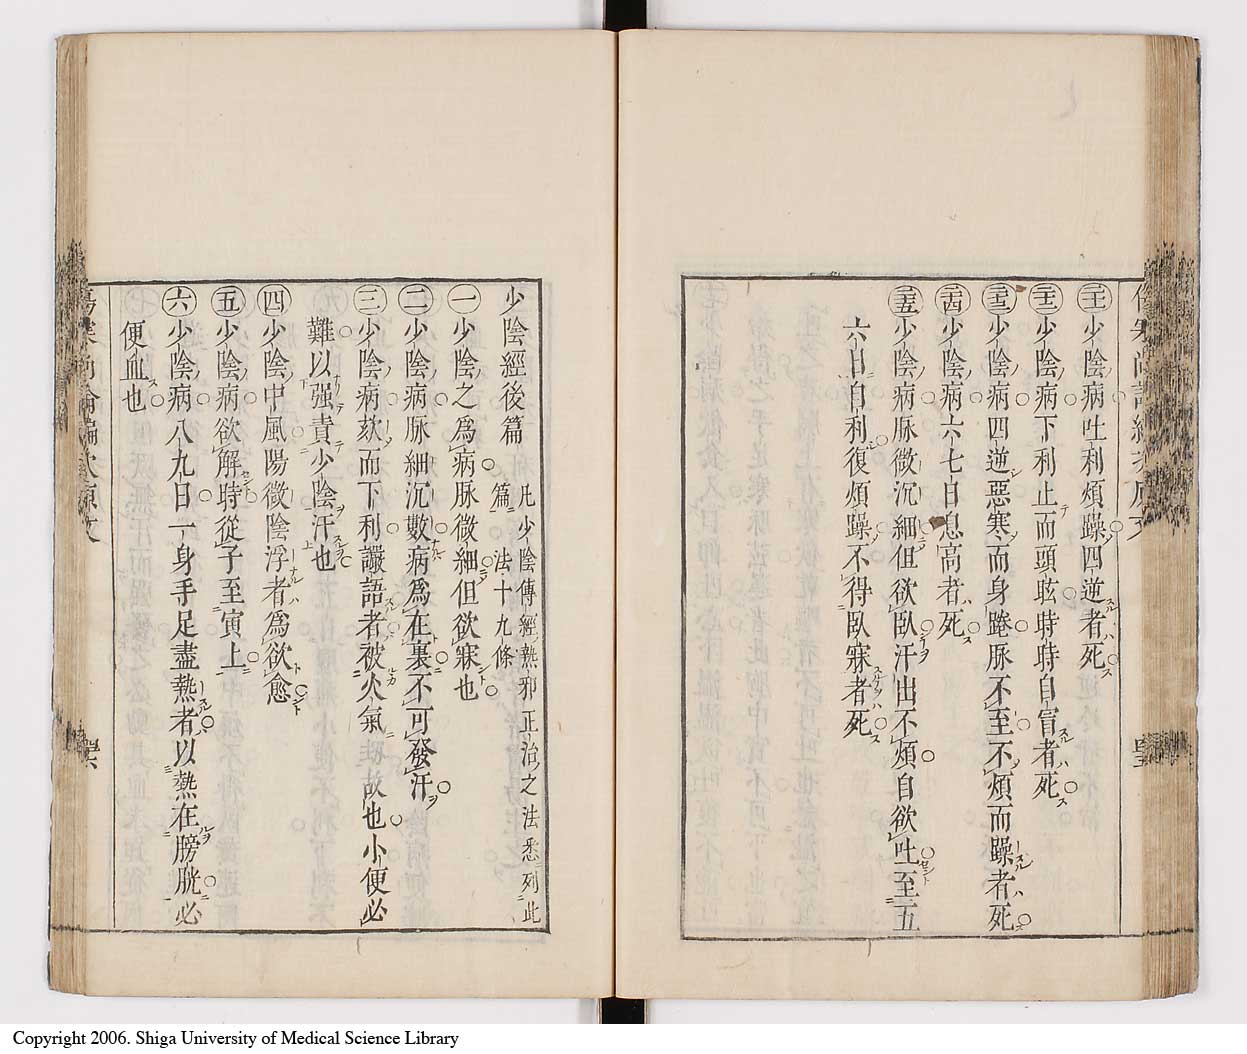 ㊁㊉少陰病吐利煩躁四逆者死
少陰病下利止而頭眩時時自冒者死
少陰病四逆惡寒而身踡脈不至不煩而躁者死
少陰病六七日息高者死
少陰病脈微沉細但欲臥汗出不煩自欲吐至五
六日自利復煩躁不得臥寐者死
少陰經後篇
凡少陰傳經熱邪正治之法悉列此
篇 法十九條
一少陰之爲病脈微細但欲寐也
二少陰病脈細沉數病爲在裏不可發汗
三少陰病欬而下利讝語者被火氣劫故也小便必
難以强責少陰汗也
四少陰中風陽微陰浮者爲欲愈
五少陰病欲解時從子至寅上
六少陰病八九日一身手足盡熱者以熱在膀胱必
便血也
Copyright 2006. Shiga University of Medical Science Library